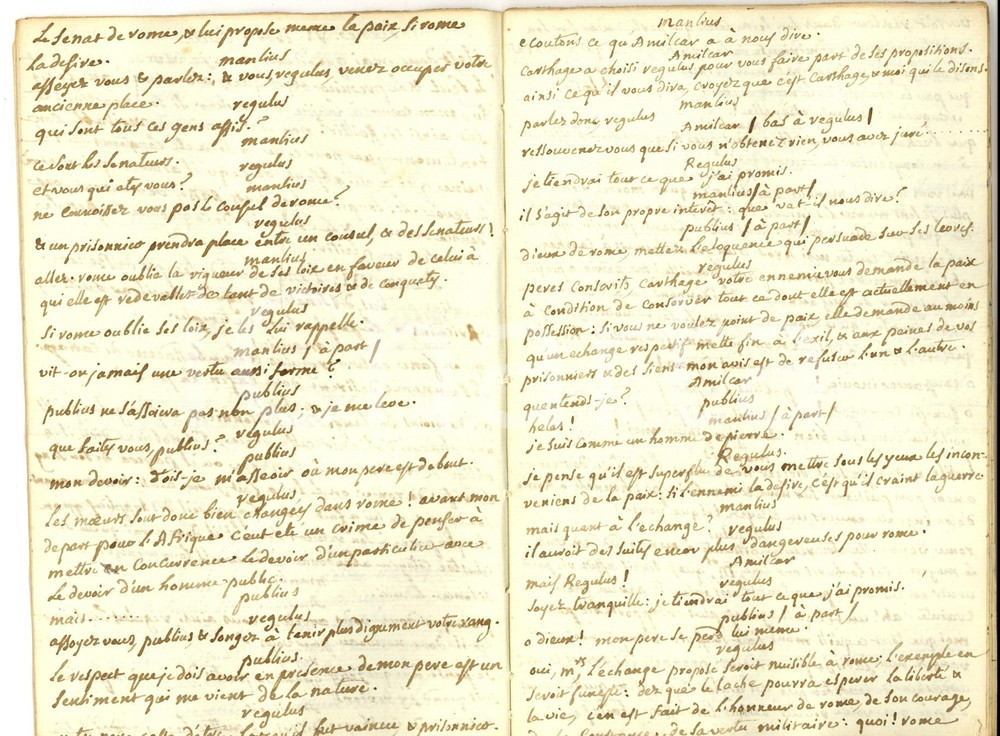 Le senat de rome, & lui propose meme la paix, si rome
la desire.
manlius
asseyez vous & parlez: & vous, regulus, venez occuper votre
ancienne place.
regulus
qui sont tous ces gens assis?
manlius
ce sont les senateurs.
regulus
et vous qui etes vous?
manlius
ne connoissez vous pas le consul de rome?
regulus
& un prisonnier prendra place entre un consul, & des senateurs!
manlius
allez. rome oublie la vigueur de ses loix en faveur de celui à
qui elle est redevable de tant de victoires & de conquetes.
regulus
si rome oublie ses loix, je les lui rappelle.
manlius / à part /
vit-on jamais une vertu aussi ferme?
publius
publius ne s'assoiera pas non plus; & je me leve.
regulus
que faites vous, publius?
publius
mon devoir: dois-je m'asseoir où mon pere est debout.
regulus
Les mœurs sont donc bien changées dans rome! avant mon
depart pour l'Afrique c'eut eté un crime de penser à
mettre en concurrence le devoir d'un particulier avec
le devoir d'un homme public.
publius
mais........
regulus
assoyez vous, publius & songez à tenir plus dignement votre rang.
publius
le respect que je dois avoir en presence de mon pere est un
sentiment qui me vient de la nature.
regulus
fut vaincu & prisonnier.
manlius
ecoutons ce qu'Amilcar a à nous dire.
Amilcar
Carthage a choisi regulus pour vous faire part de ses propositions.
ainsi ce qu'il vous dira, croyez que c'est Carthage, & moi qui le disons.
manlius
parlez donc, regulus
Amilcar / bas à regulus /
ressouvenez vous que si vous n'obtenez rien, vous avez juré........
Regulus
je tiendrai tout ce que j'ai promis.
manlius / à part /
il s'agit de son propre interêt: que va t-il nous dire?
publius / à part /
dieux de rome mettez l'eloquence qui persuade sur ses levres.
regulus
peres conscrits Carthage votre ennemie vous demande la paix
à condition de conserver tout ce dont elle est actuellement en
possession: si vous ne voulez point de paix elle demande au moins
qu'un echange respectif mette fin à l'exil, & aux peines de vos
prisonniers & des siens: mon avis est de refuser l'un & l'autre.
Amilcar
quentends-je?
publius
helas!
manlius / à part /
je suis comme un homme de pierre.
Regulus.
je pense qu'il est superflu de vous mettre sous les yeux les incon-
veniens de la paix: si l'ennemi la desire, c'est qu'il craint la guerre
manlius
mais quant à l'echange?
regulus
il auroit des suites encor plus dangereuses pour rome.
Amilcar
mais Regulus!
regulus
soyez tranquille: je tiendrai tout ce que j'ai promis.
publius / à part /
o dieux! mon pere se perd lui meme.
regulus
oui, mrs, l'echange proposé seroit nuisible à rome; l'exemple en
seroit funeste: dez que le lache pourra esperer la liberté &
la vie, c'en est fait de l'honneur de rome, de son courage,
de sa vertu militaire: quoi! rome